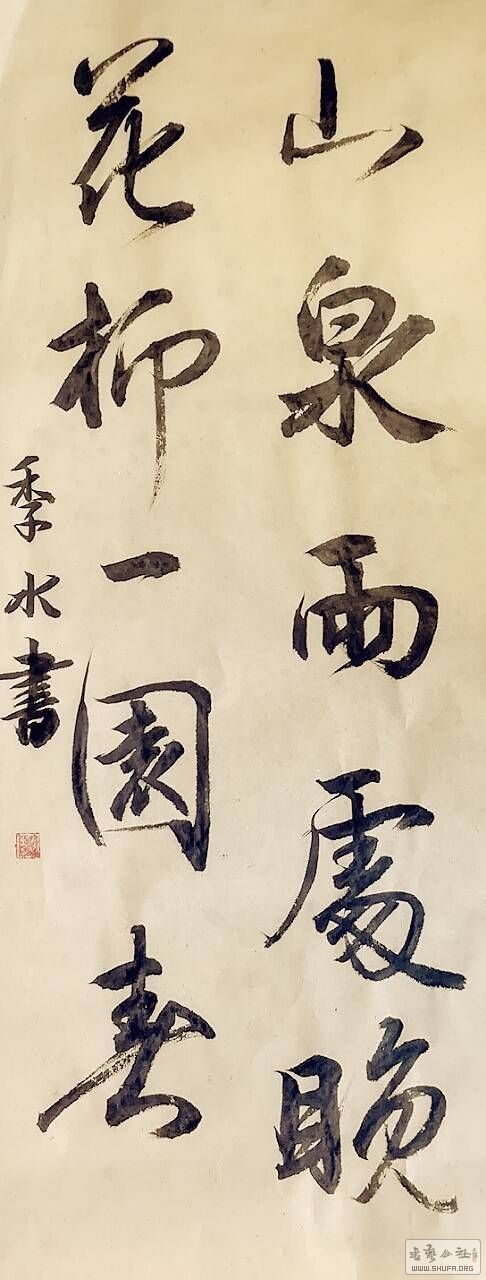 山泉兩處晚
花柳一園春
季水書
書藝公社
WWW.SHUFA.ORG